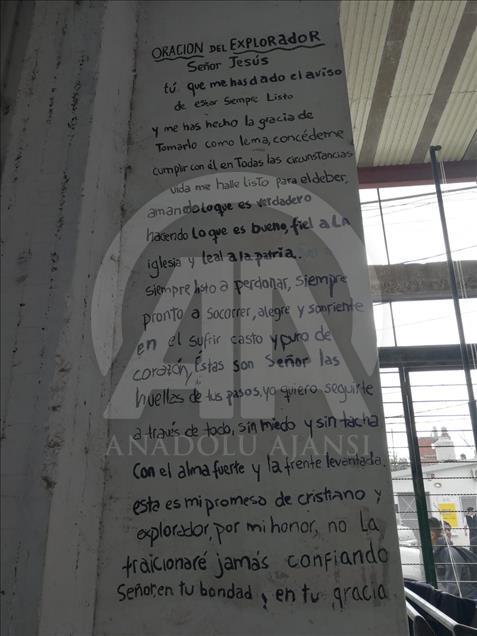 ORACION DEL EXPLORADOR
Señor Jesús
tú que me has dado el aviso
de estar siempre Listo
y me has hecho la gracia de
Tomarlo como lema, concédeme
cumplir con él en Todas las circunstancias
vida me halle listo para el deber,
amando lo que es verdadero
haciendo lo que es bueno, fiel a La
iglesia y leal a la patria..
siempre listo a perdonar, siempre
pronto a socorrer, alegre y sonriente
en el sufrir casto y puro de
corazón, Éstas son Señor las
huellas de tus pasos, yo quiero seguirte
a través de todo, sin miedo y sin tacha
con el alma fuerte y la frente levantada.
esta es mi promesa de cristiano y
explorador, por mi honor, no La
traicionaré jamás confiando
Señor, en tu bondad y en tu gracia
ANADOLU AJANSI